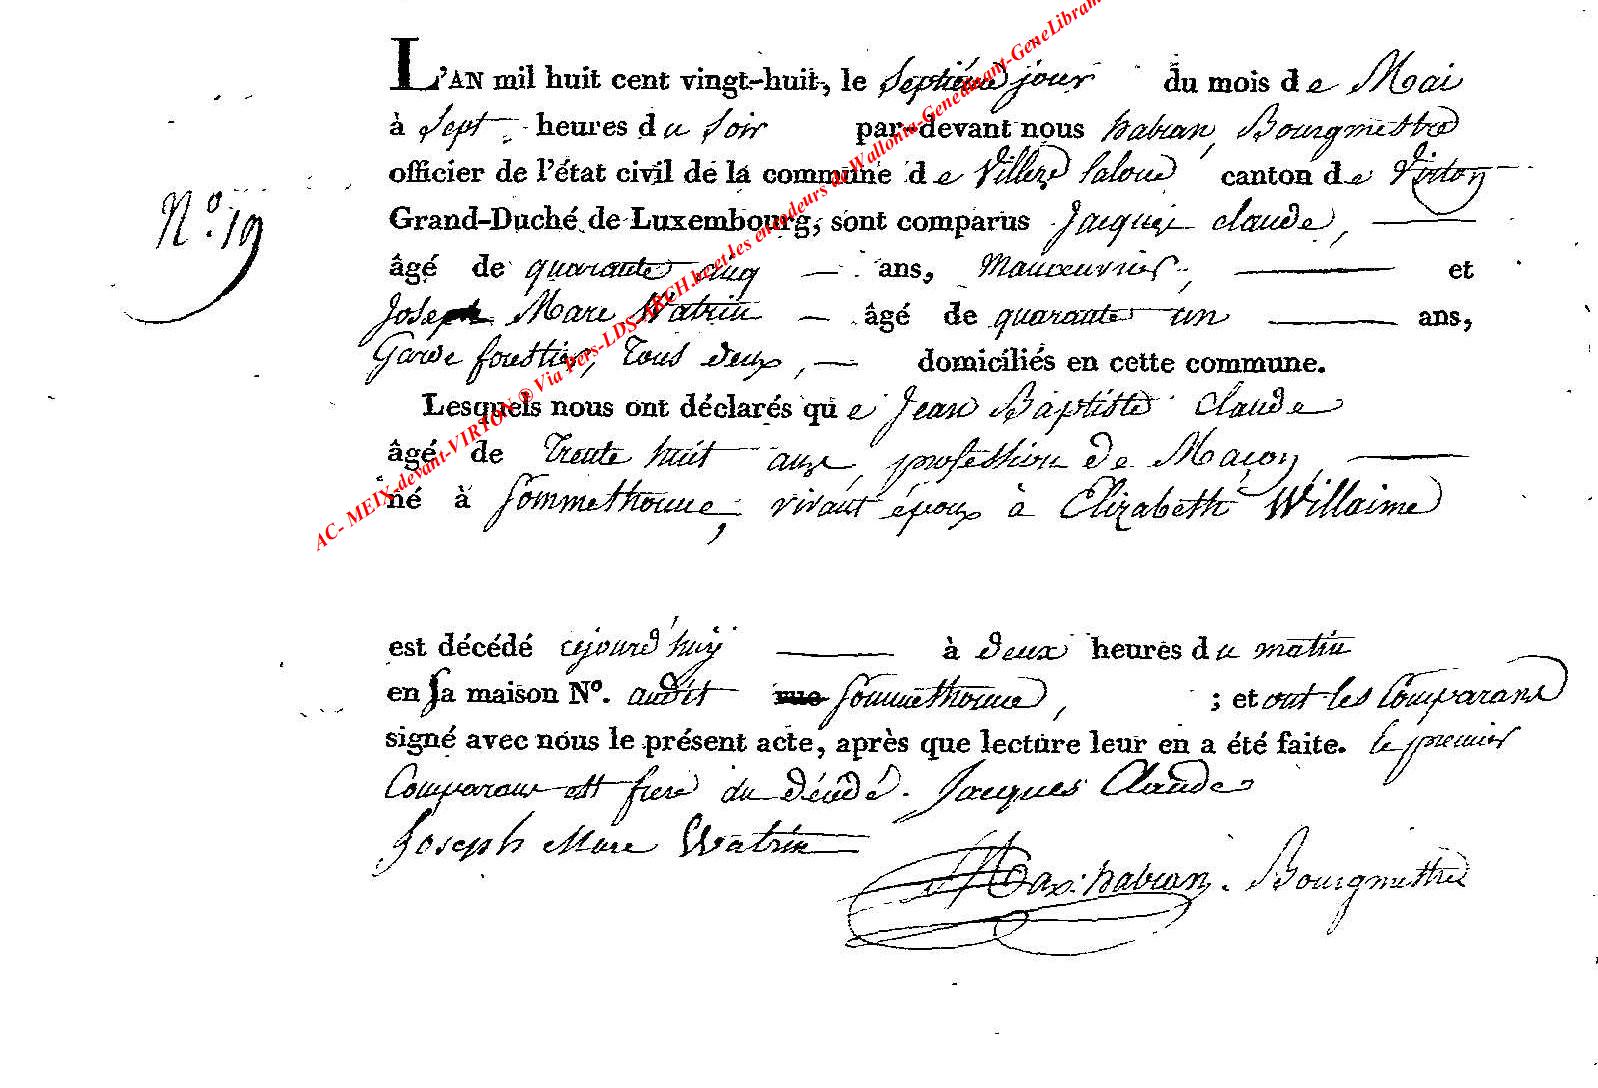 L'AN mil huit cent vingt-huit, le Septiéme jour du mois de Mai
à Sept heures du soir par-devant nous habran, Bourgmestre
officier de l'état civil de la commune de Villers laloue canton de Virton
Grand-Duché de Luxembourg, sont comparus Jacques Claude,
N.° 19
âgé de quarante cinq ans, Manœuvrier, et
Joseph Marc Watrin âgé de quarante un ans,
Garde forestier, tous deux, domiciliés en cette commune.
Lesquels nous ont déclarés que Jean Baptiste Claude
âgé de trente huit ans, profession de Maçon,
né à Sommethonne, vivant époux à Elizabeth Willaime
est décédé cejourd'huy à deux heures du matin
en sa maison N°. audit rue Sommethonne, ; et ont les Comparans
signé avec nous le présent acte, après que lecture leur en a été faite. le premier
Comparant est frere du décédé. Jacques Claude
Joseph Marc Watrin
Max. habran. Bourgmestre
AC- MEIX-devant-VIRTON ® Via Pers-LDS-ARCH.be et les encodeurs de Wallonia-Genedinant-GeneLibram